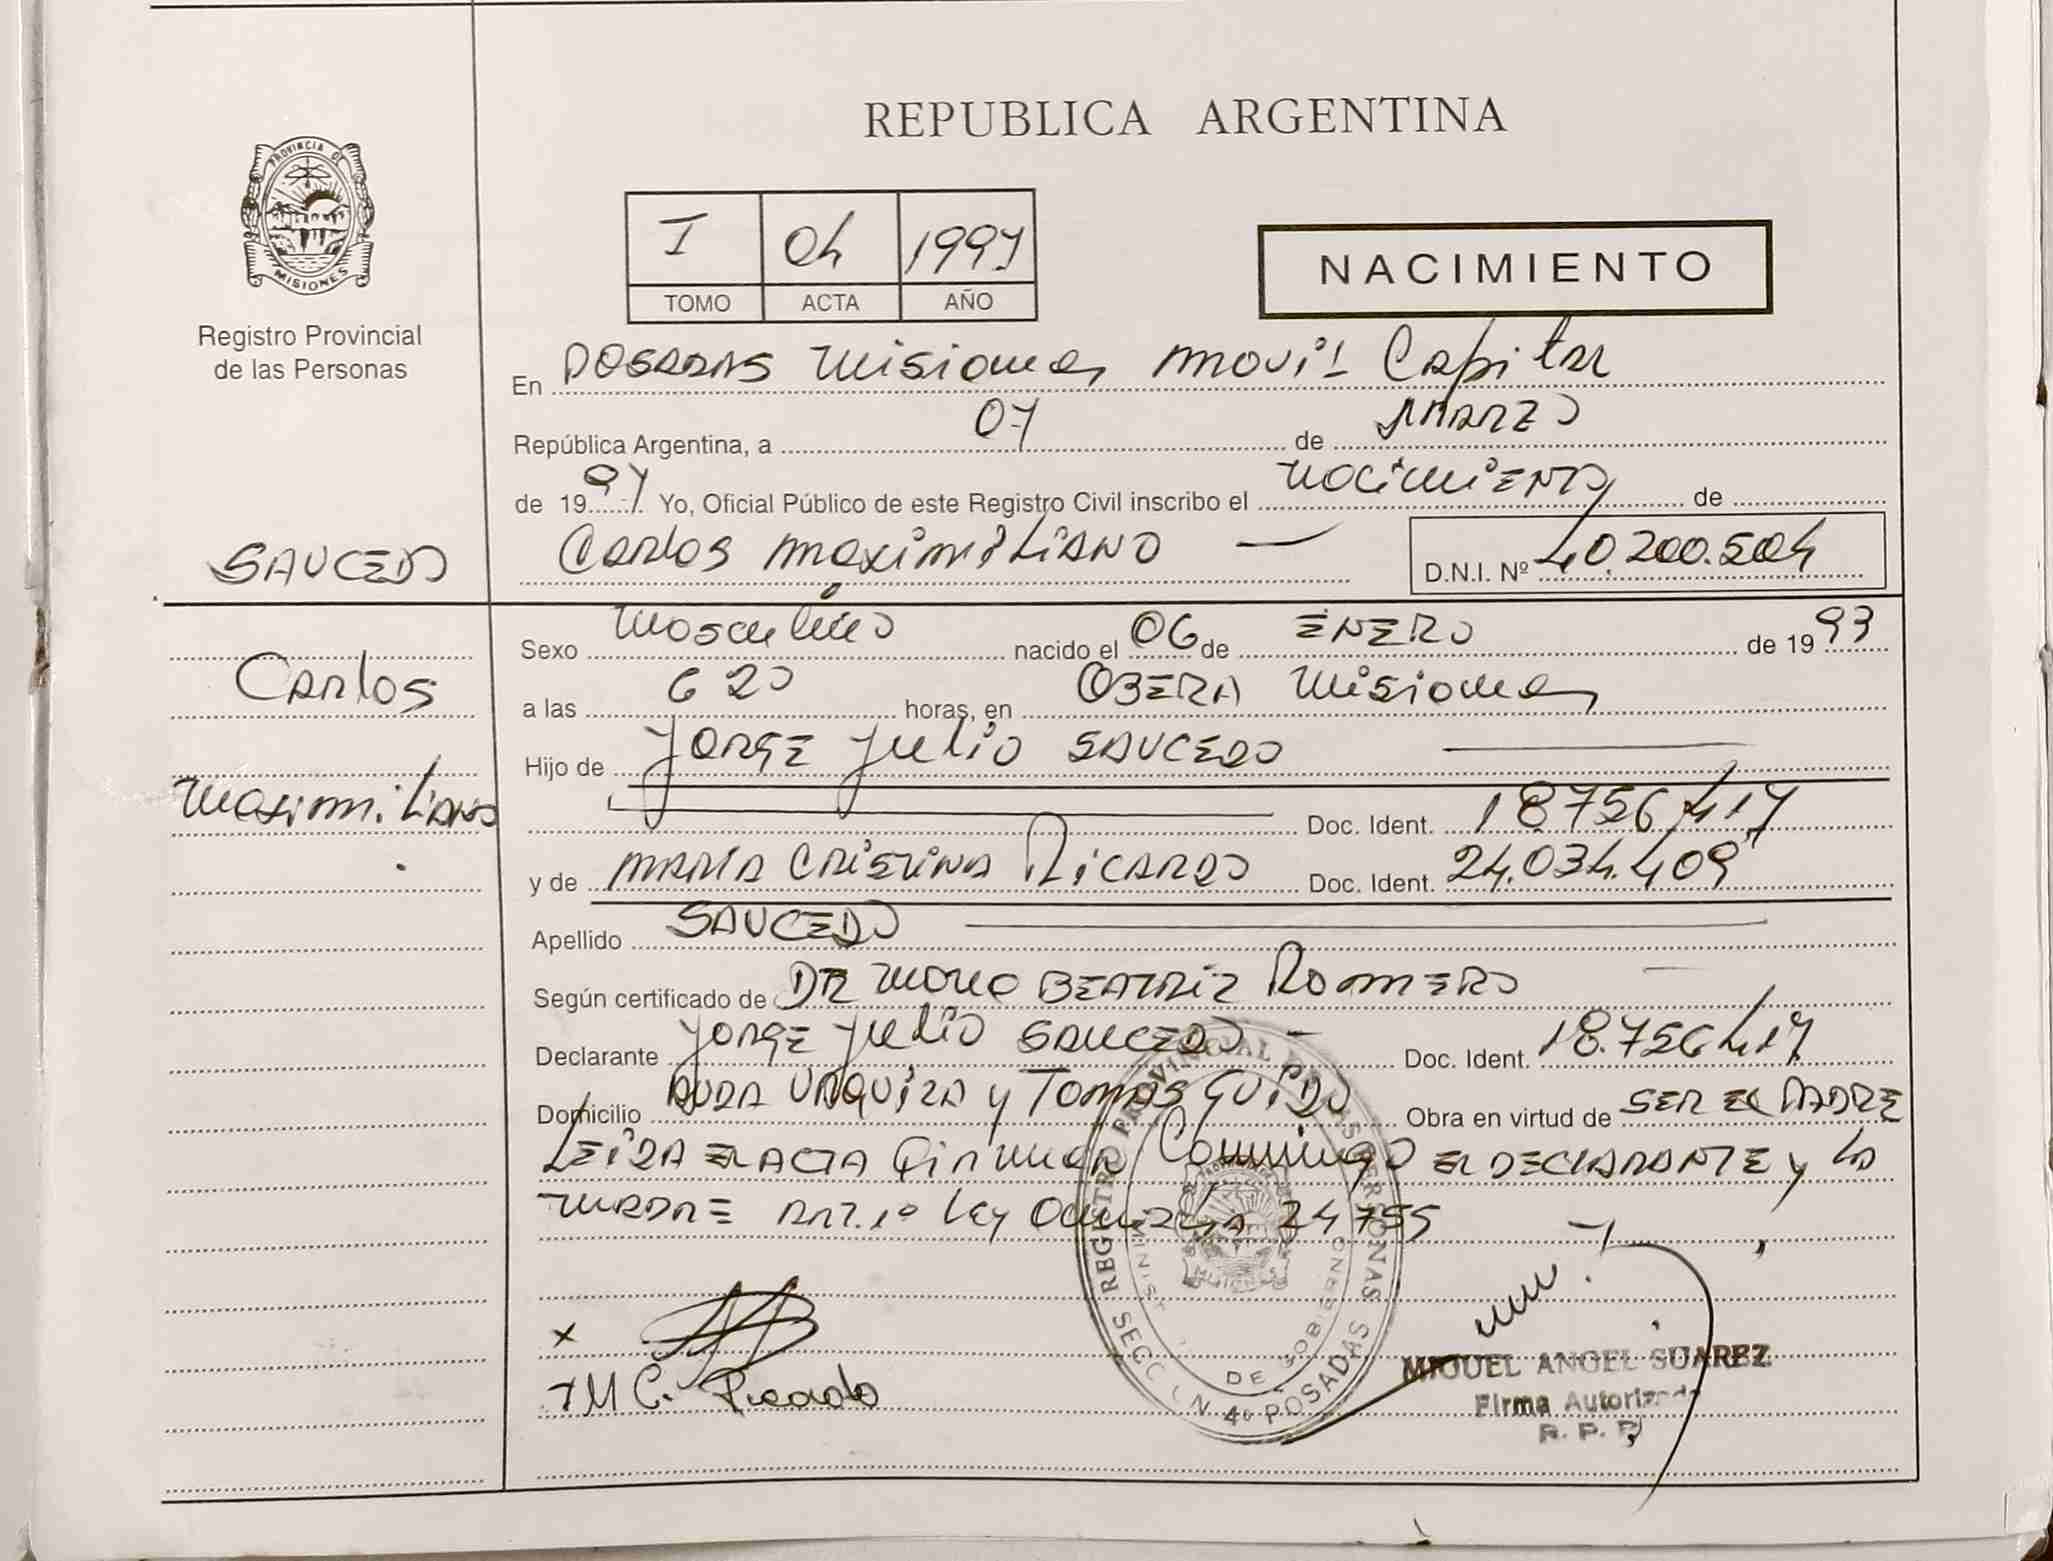 REPUBLICA ARGENTINA
PROVINCIA DE
MISIONES
Registro Provincial
de las Personas
I 04 1997
TOMO ACTA AÑO
NACIMIENTO
En POSADAS Misiones MOVIL Capital
República Argentina, a 07 de MARZO
de 1997 Yo, Oficial Público de este Registro Civil inscribo el NACIMIENTO de
SAUCEDO
Carlos MAXIMILIANO
D.N.I. Nº 40.200.504
Sexo Masculino nacido el 06 de ENERO de 1993
Carlos
a las 6 20 horas, en OBERA Misiones
Hijo de Jorge Julio SAUCEDO
Maximiliano
Doc. Ident. 18.756.417
y de MARIA CRISTINA RICARDO Doc. Ident. 24.034.409
Apellido SAUCEDO
Según certificado de DR BEATRIZ ROMERO
Declarante Jorge Julio SAUCEDO Doc. Ident. 18.756.417
Domicilio AVDA URQUIZA y TOMAS GUIDO Obra en virtud de SER EL PADRE
LEIDA EL ACTA FIRMAN Conmigo EL DECLARANTE y LA
MADRE ART. 1º Ley 24755
REGISTRO PROVINCIAL DE LAS PERSONAS
DE GOBIERNO
SECCION 4º POSADAS
x
+ M C. Ricardo
MIGUEL ANGEL SUAREZ
Firma Autorizada
R. P. P.